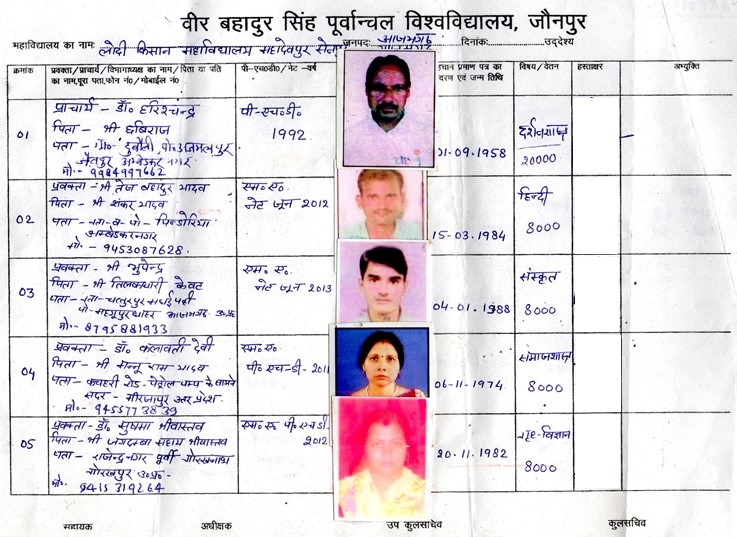 वीर बहादुर सिंह पूर्वान्चल विश्वविद्यालय, जौनपुर
महाविद्यालय का नाम: लोदी किसान महाविद्यालय महादेवपुर जनपद: आजमगढ़ दिनांक: उद्देश्य
क्रमांक प्रवक्ता/प्राचार्य/विभागाध्यक्ष का नाम/पिता या पति का नाम,पूरा पता,फोन नं०/मोबाईल नं० पी–एच०डी०/नेट –वर्ष प्रमाण पत्र का जन्म तिथि विषय/वेतन हस्ताक्षर अभ्युक्ति
01 प्राचार्य – डॉ० हरिश्चन्द्र पी–एच०डी०
पिता – श्री छविराज 1992 दर्शनशास्त्र
पता – 01-09.1958 20000
अम्बेडकर नगर
मो०- 9984997662
02 प्रवक्ता – श्री तेज बहादुर यादव एम० ए० हिन्दी
पिता – श्री शंकर यादव नेट जून 2012
पता – 15-03.1984 8000
अम्बेडकरनगर
मो० – 9453087628.
03 प्रवक्ता – श्री भूपेन्द्र एम० ए० संस्कृत
पिता – श्री तिलकधारी केवट नेट जून 2013
पता – 04-01.1988 8000
आजमगढ़ उ०प्र०
मो०- 8795881933
04 प्रवक्ता – डॉ० कलावती देवी एम० ए० समाजशास्त्र
पिता – श्री मन्नू राम यादव पी० एच–डी–2011
पता – कचहरी रोड – पेट्रोल पम्प के सामने 06-11-1974 8000
सदर – मीरजापुर उत्तर प्रदेश
मो०- 9455773839
05 प्रवक्ता – डॉ० सुषमा श्रीवास्तव एम० ए० पी० एचडी गृह-विज्ञान
पिता – श्री जगदम्बा सहाय श्रीवास्तव 2012
पता – राजेन्द्र नगर पूर्वी गोरखनाथ 20-11-1982 8000
गोरखपुर उ०प्र०-
मो०- 9415319264
सहायक अधीक्षक उप कुलसचिव कुलसचिव